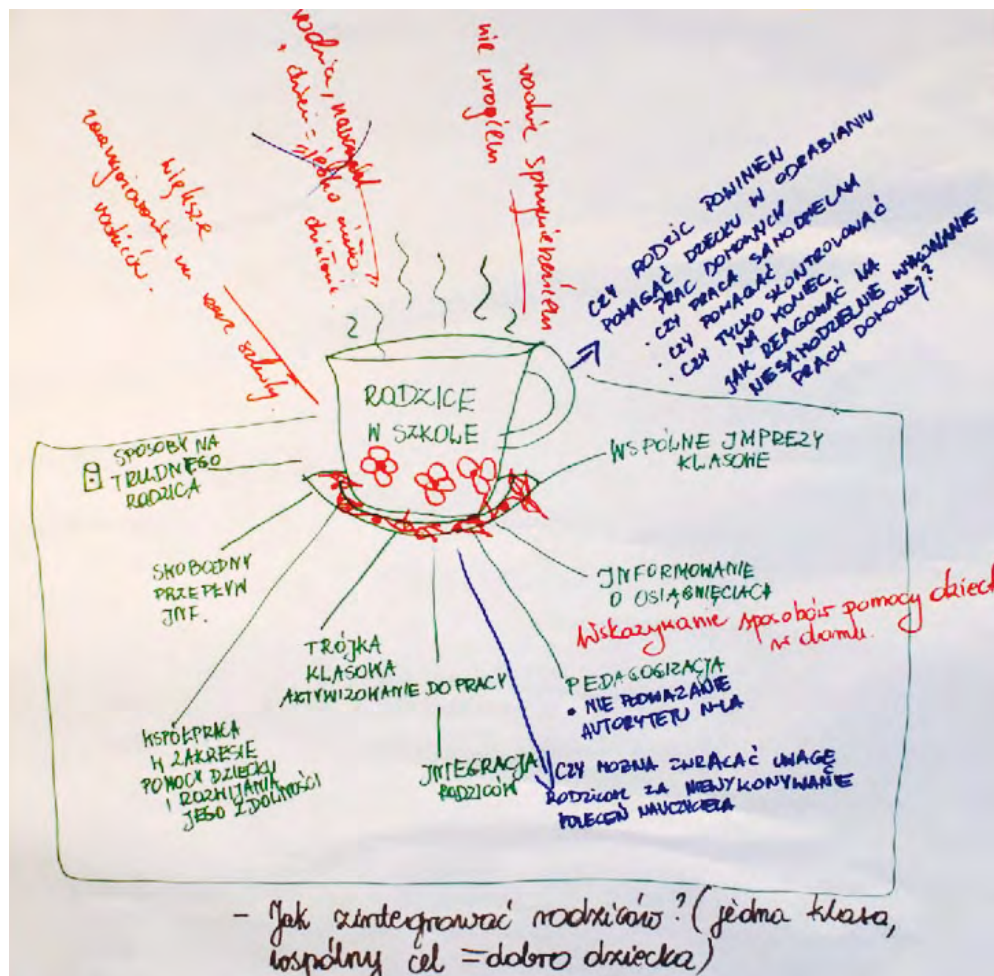 większe
zaangażowanie w
rodziców.
szkoły.
rodzice,
dzieci =
działanie
rodzic sprzymierzeńcem
nie wrogiem
CZY RODZIC POWINIEN
POMAGAĆ DZIECKU W ODRABIANIU
PRAC DOMOWYCH
• CZY PRACA SAMODZIELNA
• CZY POMAGAĆ
• CZY TYLKO SKONTROLOWAĆ
NA KONIEC.
JAK REAGOWAĆ NA
NIESAMODZIELNE WYKONANIE
PRACY DOMOWEJ??
RODZICE
W SZKOLE
SPOSOBY NA
TRUDNEGO
RODZICA
WSPÓLNE IMPREZY
KLASOWE
SWOBODNY
PRZEPŁYW
INF.
INFORMOWANIE
O OSIĄGNIĘCIACH
Wskazywanie sposobów pomocy dziecku
w domu.
TRÓJKA
KLASOWA
AKTYWIZOWANIE DO PRACY
PEDAGOGIZACJA
• NIE PODWAŻANIE
AUTORYTETU N-LA
WSPÓŁPRACA
W ZAKRESIE
POMOCY DZIECKU
I ROZWIJANIA
JEGO ZDOLNOŚCI
INTEGRACJA
RODZICÓW
CZY MOŻNA ZWRACAĆ UWAGĘ
RODZICOM ZA NIEWYKONYWANIE
POLECEŃ NAUCZYCIELA
- Jak zintegrować rodziców? (jedna klasa,
wspólny cel = dobro dziecka)